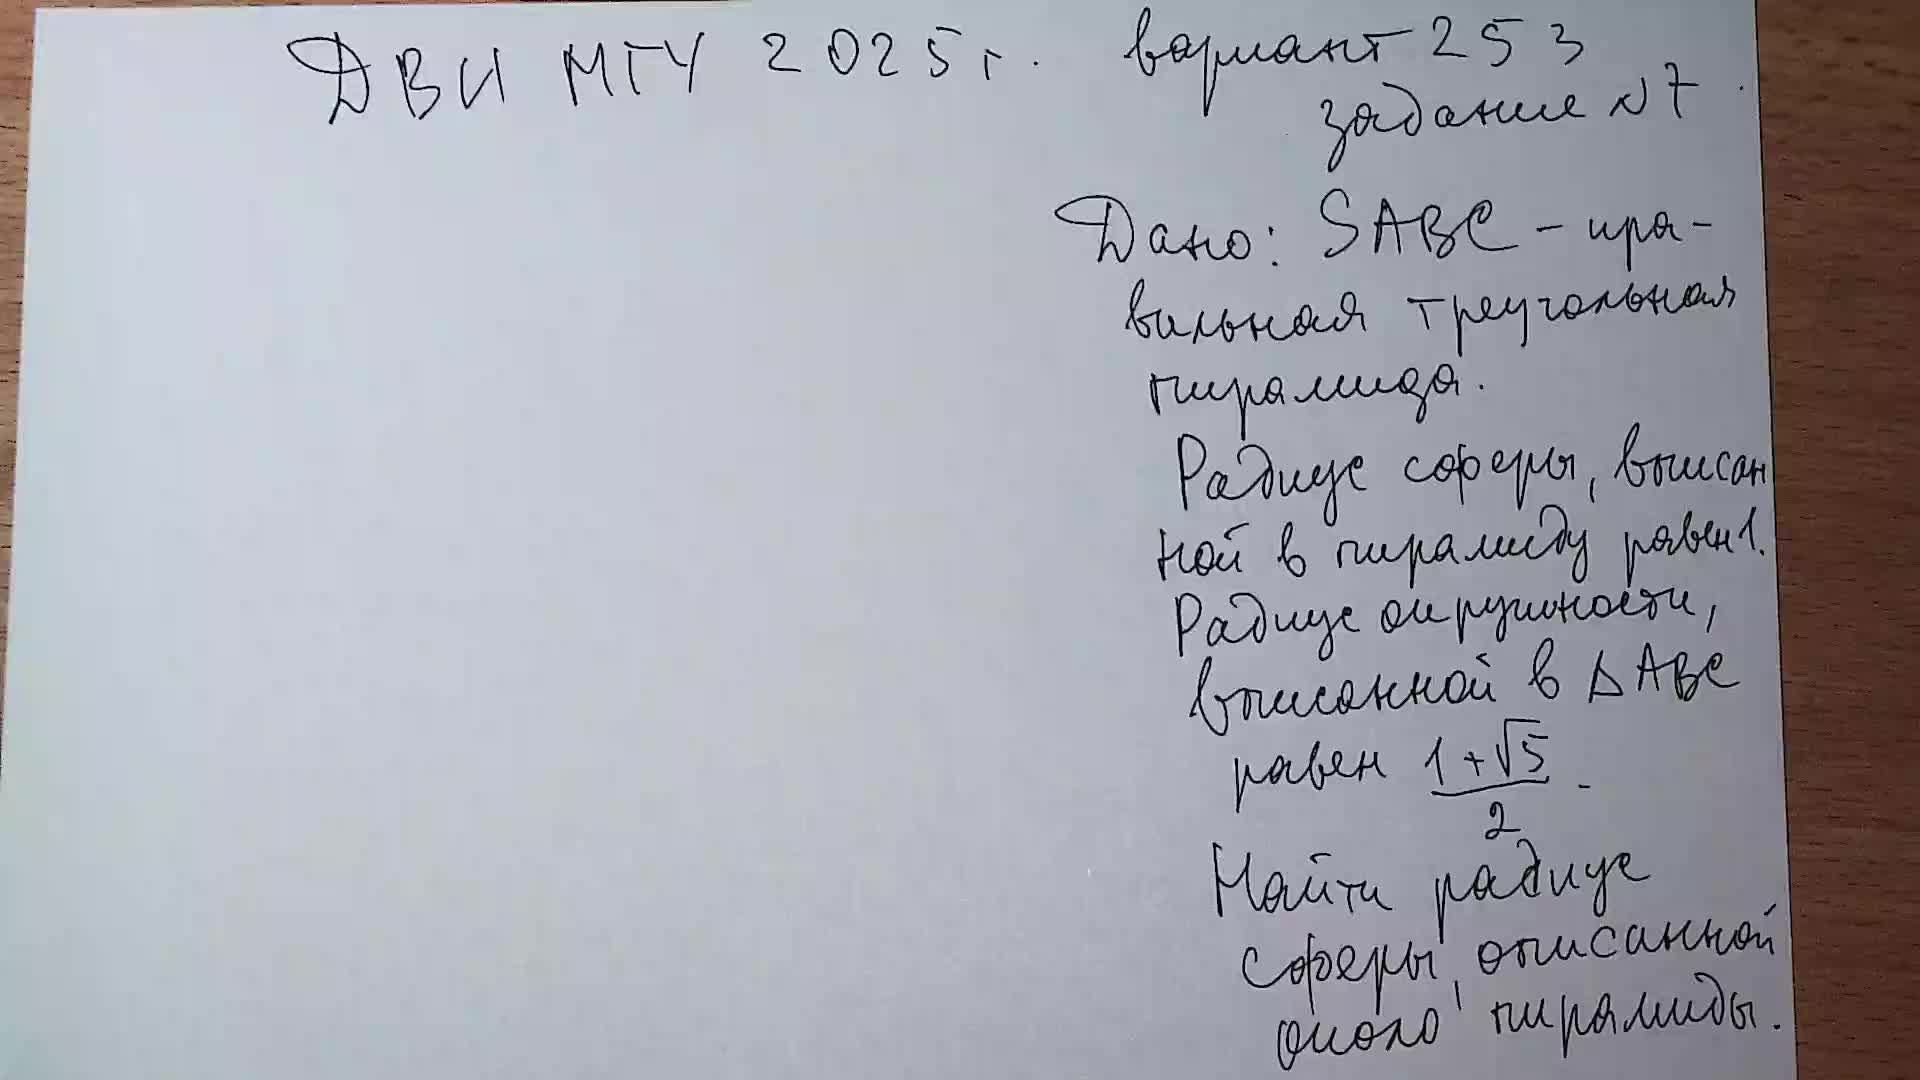 ДВИ МГУ 2025г. вариант 253
задание №7
Дано: SABC - пра-
вильная треугольная
пирамида.
Радиус сферы, вписан
ной в пирамиду равен 1.
Радиус окружности,
вписанной в ΔABC
равен (1+√5)/2.
Найти радиус
сферы, описанной
около пирамиды.